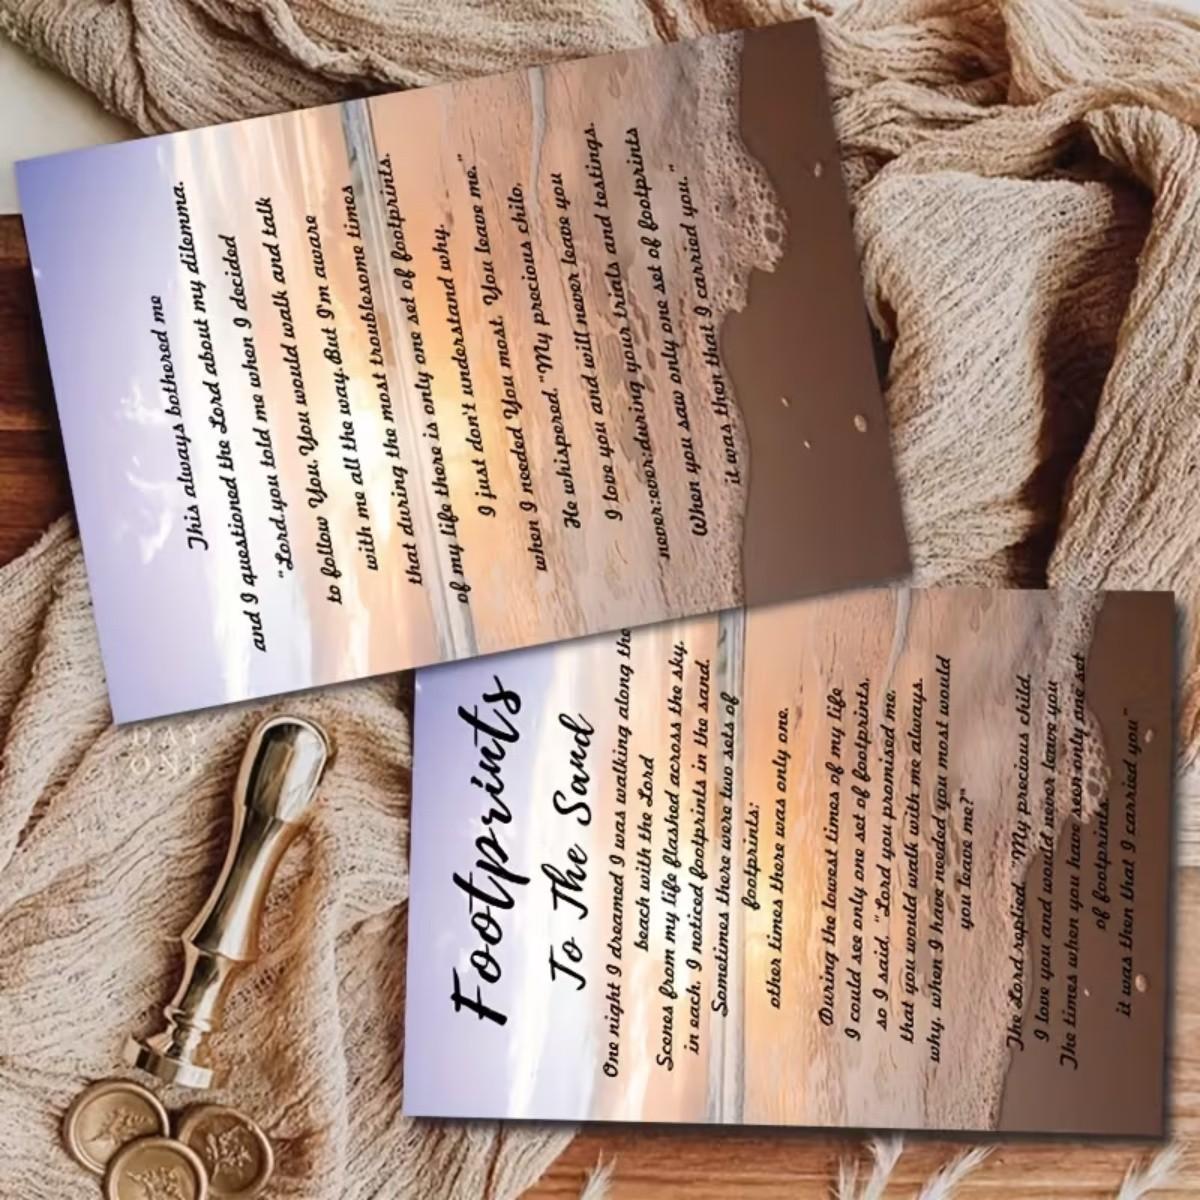 This always bothered me
and I questioned the Lord about my dilemma.
"Lord,you told me when I decided
to follow You, You would walk and talk
with me all the way.But I'm aware
that during the most troublesome times
of my life there is only one set of footprints.
I just don't understand why,
when I needed You most, You leave me."
He whispered, "My precious chilo,
I love you and will never leave you
never:ever:during your trials and testings.
When you saw only one set of footprints
it was then that I carried you."
DAY
ONE
Footprints
To The Sand
One night I dreamed I was walking along the
beach with the Lord
Scenes from my life flashed across the sky,
in each, I noticed footprints in the sand.
Sometimes there were two sets of
footprints;
other times there was only one.
During the lowest times of my life
I could see only one set of footprints,
so I said, "Lord you promised me,
that you would walk with me always.
why, when I have needed you most would
you leave me?"
The Lord replied, "My precious child,
I love you and would never leave you
The times when you have seen only one set
of footprints,
it was then that I carried you"